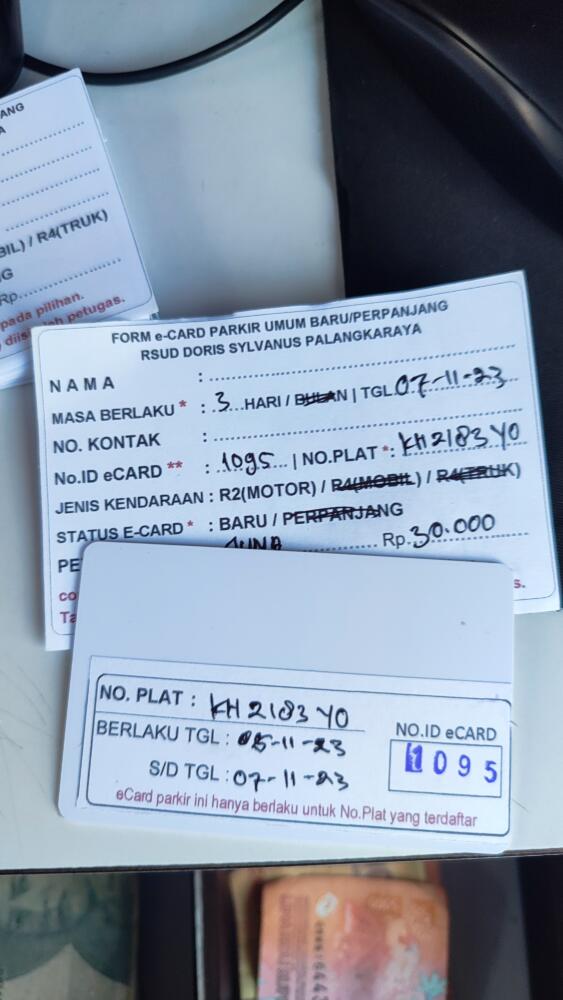 ANG
A
BIL) / R4(TRUK)
G
Rp.
pada pilihan.
petugas.
FORM e-CARD PARKIR UMUM BARU/PERPANJANG
RSUD DORIS SYLVANUS PALANGKARAYA
NAMA :
MASA BERLAKU * : 3 HARI / BULAN | TGL 07-11-23
NO. KONTAK :
No.ID eCARD ** : 1095 | NO.PLAT *: KH 2183 YO
JENIS KENDARAAN : R2(MOTOR) / R4(MOBIL) / R4(TRUK)
STATUS E-CARD * : BARU / PERPANJANG
PE Rp. 30.000
co s.
Ta
NO. PLAT : KH 2183 YO
BERLAKU TGL : 05-11-23
S/D TGL : 07-11-23
NO.ID eCARD
1095
eCard parkir ini hanya berlaku untuk No.Plat yang terdaftar